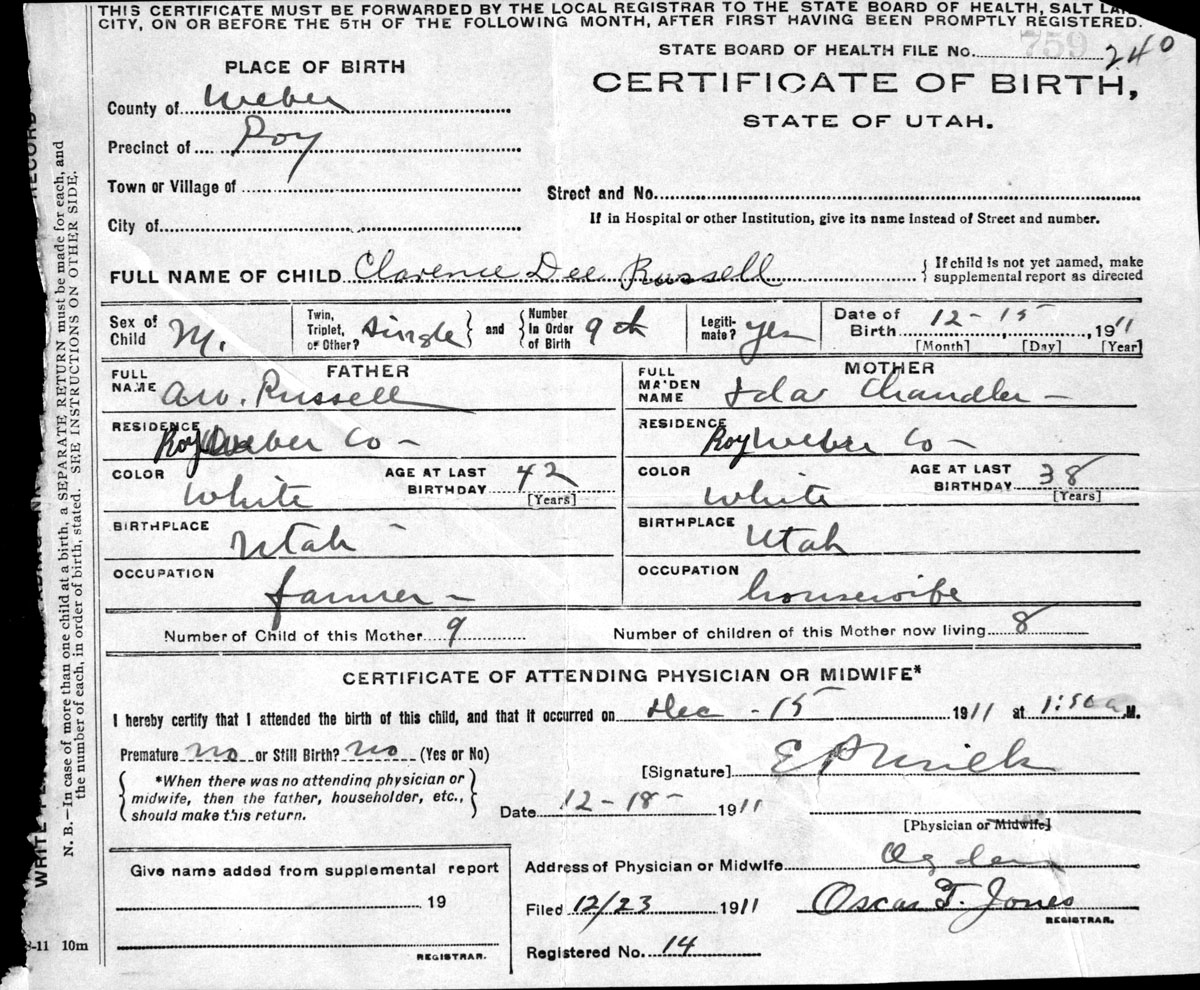 THIS CERTIFICATE MUST BE FORWARDED BY THE LOCAL REGISTRAR TO THE STATE BOARD OF HEALTH, SALT LAKE
CITY, ON OR BEFORE THE 5TH OF THE FOLLOWING MONTH, AFTER FIRST HAVING BEEN PROMPTLY REGISTERED.
STATE BOARD OF HEALTH FILE No. 759 240
CERTIFICATE OF BIRTH,
STATE OF UTAH.
PLACE OF BIRTH
County of Weber
Precinct of Roy
Town or Village of
Street and No.
City of
If in Hospital or other Institution, give its name instead of Street and number.
FULL NAME OF CHILD Clarence Dee Russell { If child is not yet named, make
supplemental report as directed
Sex of Child M. Twin, Triplet, or Other? Single } and { Number In Order of Birth 9th Legiti-mate? yes Date of Birth 12 - 15, 1911
[Month] [Day] [Year]
FATHER
FULL NAME A.W. Russell
RESIDENCE Roy Weber Co -
COLOR White AGE AT LAST BIRTHDAY 42 [Years]
BIRTHPLACE Utah
OCCUPATION farmer -
MOTHER
FULL MAIDEN NAME Ida Chandler -
RESIDENCE Roy Weber Co -
COLOR White AGE AT LAST BIRTHDAY 38 [Years]
BIRTHPLACE Utah
OCCUPATION housewife
Number of Child of this Mother 9 Number of children of this Mother now living 8
CERTIFICATE OF ATTENDING PHYSICIAN OR MIDWIFE*
I hereby certify that I attended the birth of this child, and that it occurred on Dec - 15 1911 at 1:50 a M.
Premature no or Still Birth? no (Yes or No)
{ *When there was no attending physician or
midwife, then the father, householder, etc.,
should make this return. }
[Signature]
Date 12 - 18 - 1911
[Physician or Midwife]
Address of Physician or Midwife Ogden
Filed 12/23 1911 Oscar T. Jones
REGISTRAR.
Registered No. 14
Give name added from supplemental report
19
REGISTRAR.
8-11 10m
N. B.—In case of more than one child at a birth, a SEPARATE RETURN must be made for each, and
the number of each, in order of birth, stated. SEE INSTRUCTIONS ON OTHER SIDE.